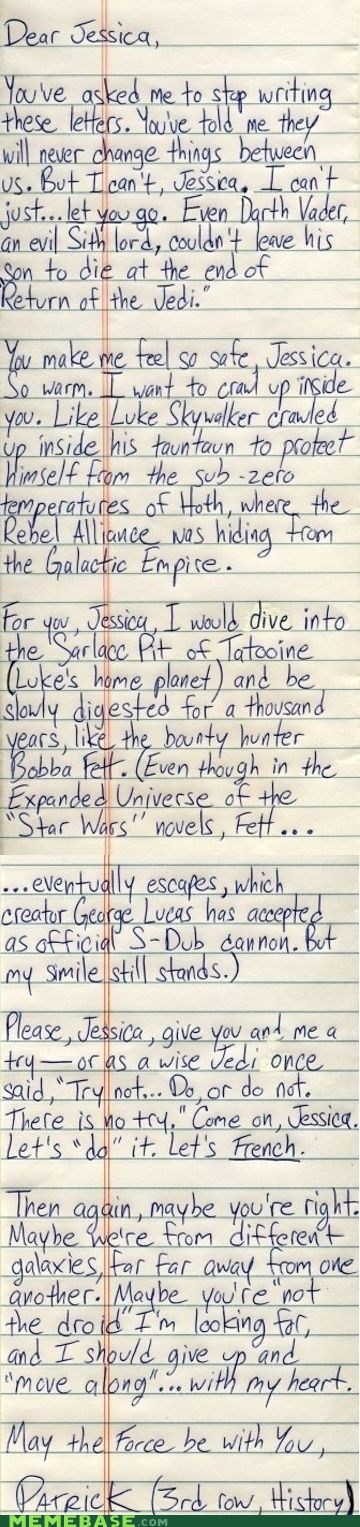 Dear Jessica,
You've asked me to stop writing
these letters. You've told me they
will never change things between
us. But I can't, Jessica. I can't
just...let you go. Even Darth Vader,
an evil Sith lord, couldn't leave his
son to die at the end of
"Return of the Jedi."
You make me feel so safe, Jessica.
So warm. I want to crawl up inside
you. Like Luke Skywalker crawled
up inside his tauntaun to protect
himself from the sub-zero
temperatures of Hoth, where the
Rebel Alliance was hiding from
the Galactic Empire.
For you, Jessica, I would dive into
the Sarlacc Pit of Tatooine
(Luke's home planet) and be
slowly digested for a thousand
years, like the bounty hunter
Bobba Fett. (Even though in the
Expanded Universe of the
"Star Wars" novels, Fett...
...eventually escapes, which
creator George Lucas has accepted
as official S-Dub cannon. But
my simile still stands.)
Please, Jessica, give you and me a
try—or as a wise Jedi once
said, "Try not... Do, or do not.
There is no try." Come on, Jessica.
Let's "do" it. Let's French.
Then again, maybe you're right.
Maybe we're from different
galaxies, far far away from one
another. Maybe you're "not
the droid" I'm looking for,
and I should give up and
"move along"... with my heart.
May the Force be with You,
PATRICK (3rd row, History)
MEMEBASE.com